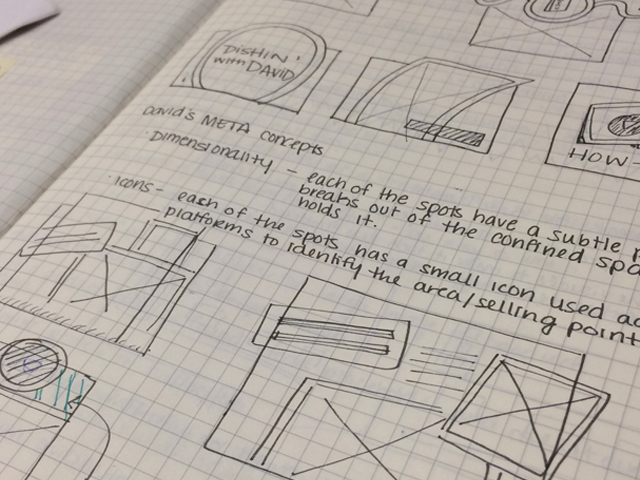 DISHIN'
with DAVID
HOW-
David's META concepts
· Dimensionality - each of the spots have a subtle
breaks out of the confined spa
holds it.
· Icons - each of the spots has a small icon used ac
platforms to identify the area/selling point